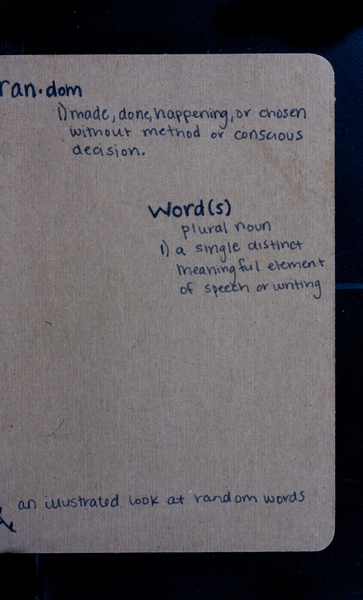 ran·dom
1) made, done, happening, or chosen
without method or conscious
decision.
Word(s)
plural noun
1) a single distinct
meaningful element
of speech or writing
an illustrated look at random words